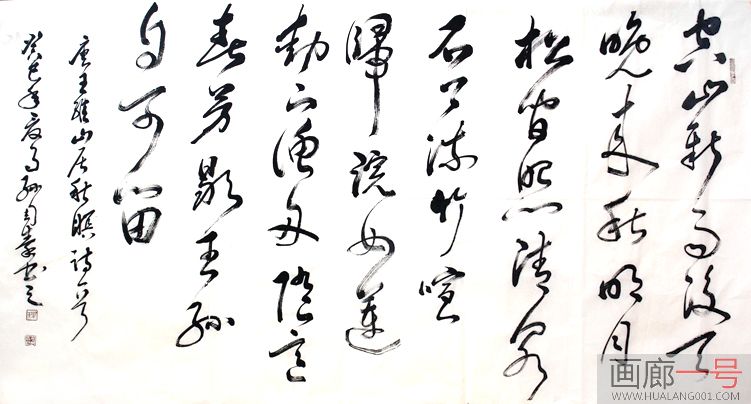 空山新雨後天
晚来秋明月
松間照清泉
石上流竹喧
歸浣女蓮
動下漁舟隨意
春芳歇王孫
自可留
唐王維山居秋暝詩一首
癸巳年夏孫書之
画廊一号
WWW.HUALANG001.COM